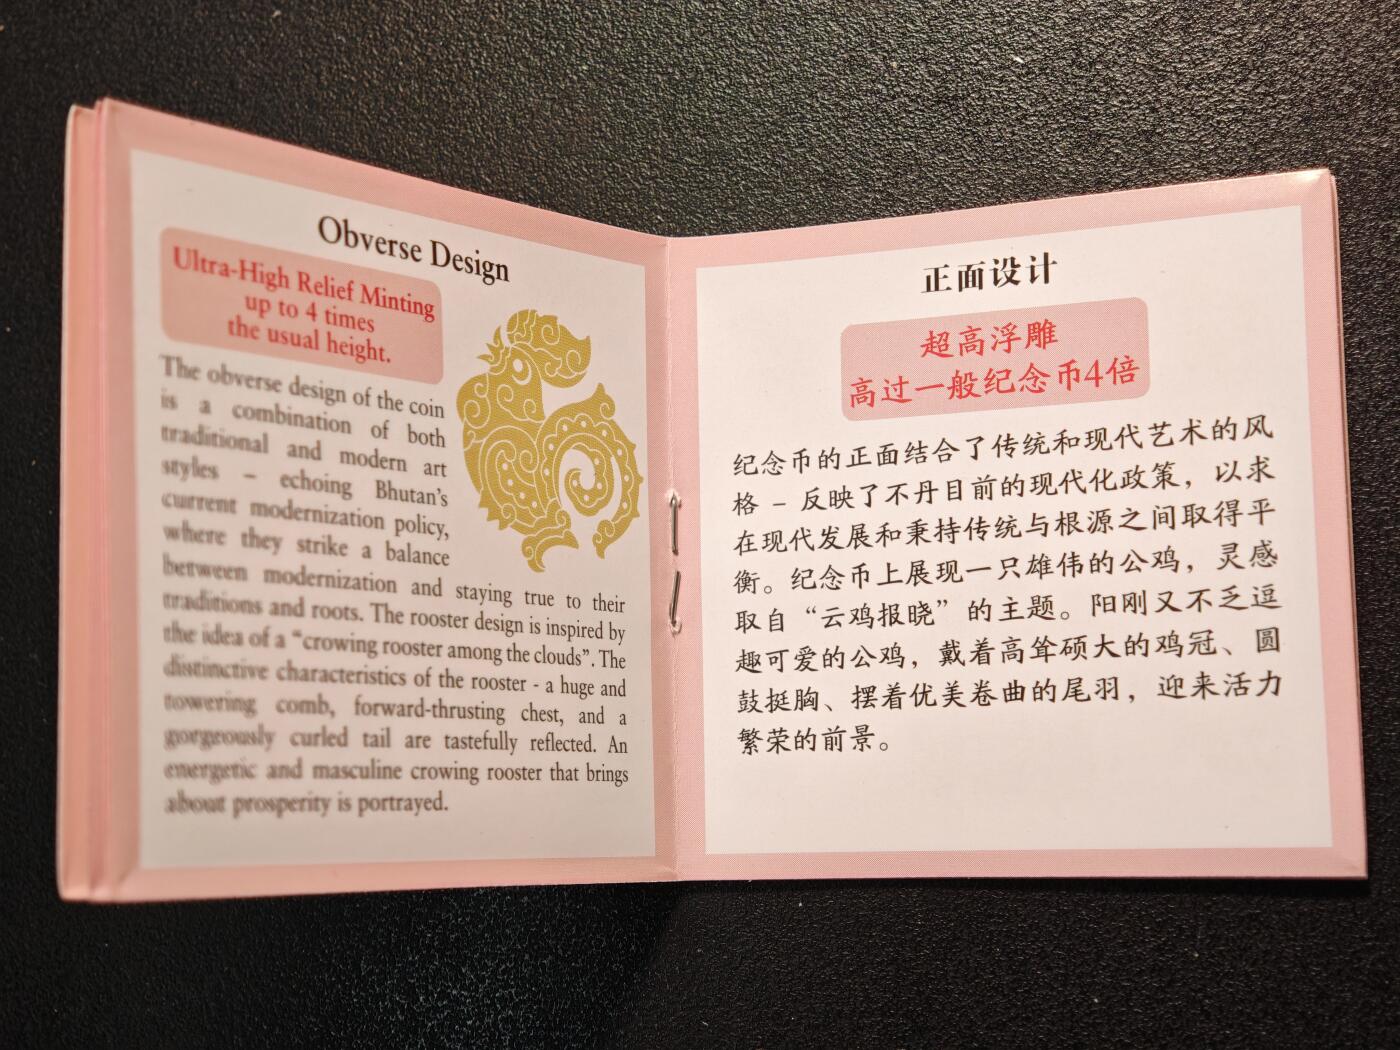 Obverse Design
Ultra-High Relief Minting
up to 4 times
the usual height.
The obverse design of the coin
is a combination of both
traditional and modern art
styles – echoing Bhutan's
current modernization policy,
where they strike a balance
between modernization and staying true to their
traditions and roots. The rooster design is inspired by
the idea of a “crowing rooster among the clouds”. The
distinctive characteristics of the rooster - a huge and
towering comb, forward-thrusting chest, and a
gorgeously curled tail are tastefully reflected. An
energetic and masculine crowing rooster that brings
about prosperity is portrayed.
正面设计
超高浮雕
高过一般纪念币4倍
纪念币的正面结合了传统和现代艺术的风
格 – 反映了不丹目前的现代化政策，以求
在现代发展和秉持传统与根源之间取得平
衡。纪念币上展现一只雄伟的公鸡，灵感
取自“云鸡报晓”的主题。阳刚又不乏逗
趣可爱的公鸡，戴着高耸硕大的鸡冠、圆
鼓挺胸、摆着优美卷曲的尾羽，迎来活力
繁荣的前景。